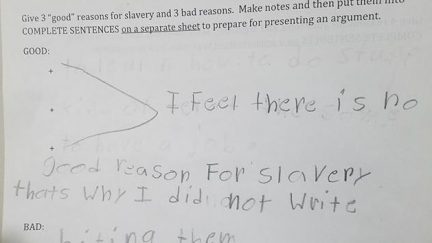 Give 3 "good" reasons for slavery and 3 bad reasons. Make notes and then put them into
COMPLETE SENTENCES on a separate sheet to prepare for presenting an argument.
GOOD:
+
+
+
I Feel there is no
good reason For slavery
thats why I did not write
BAD:
them